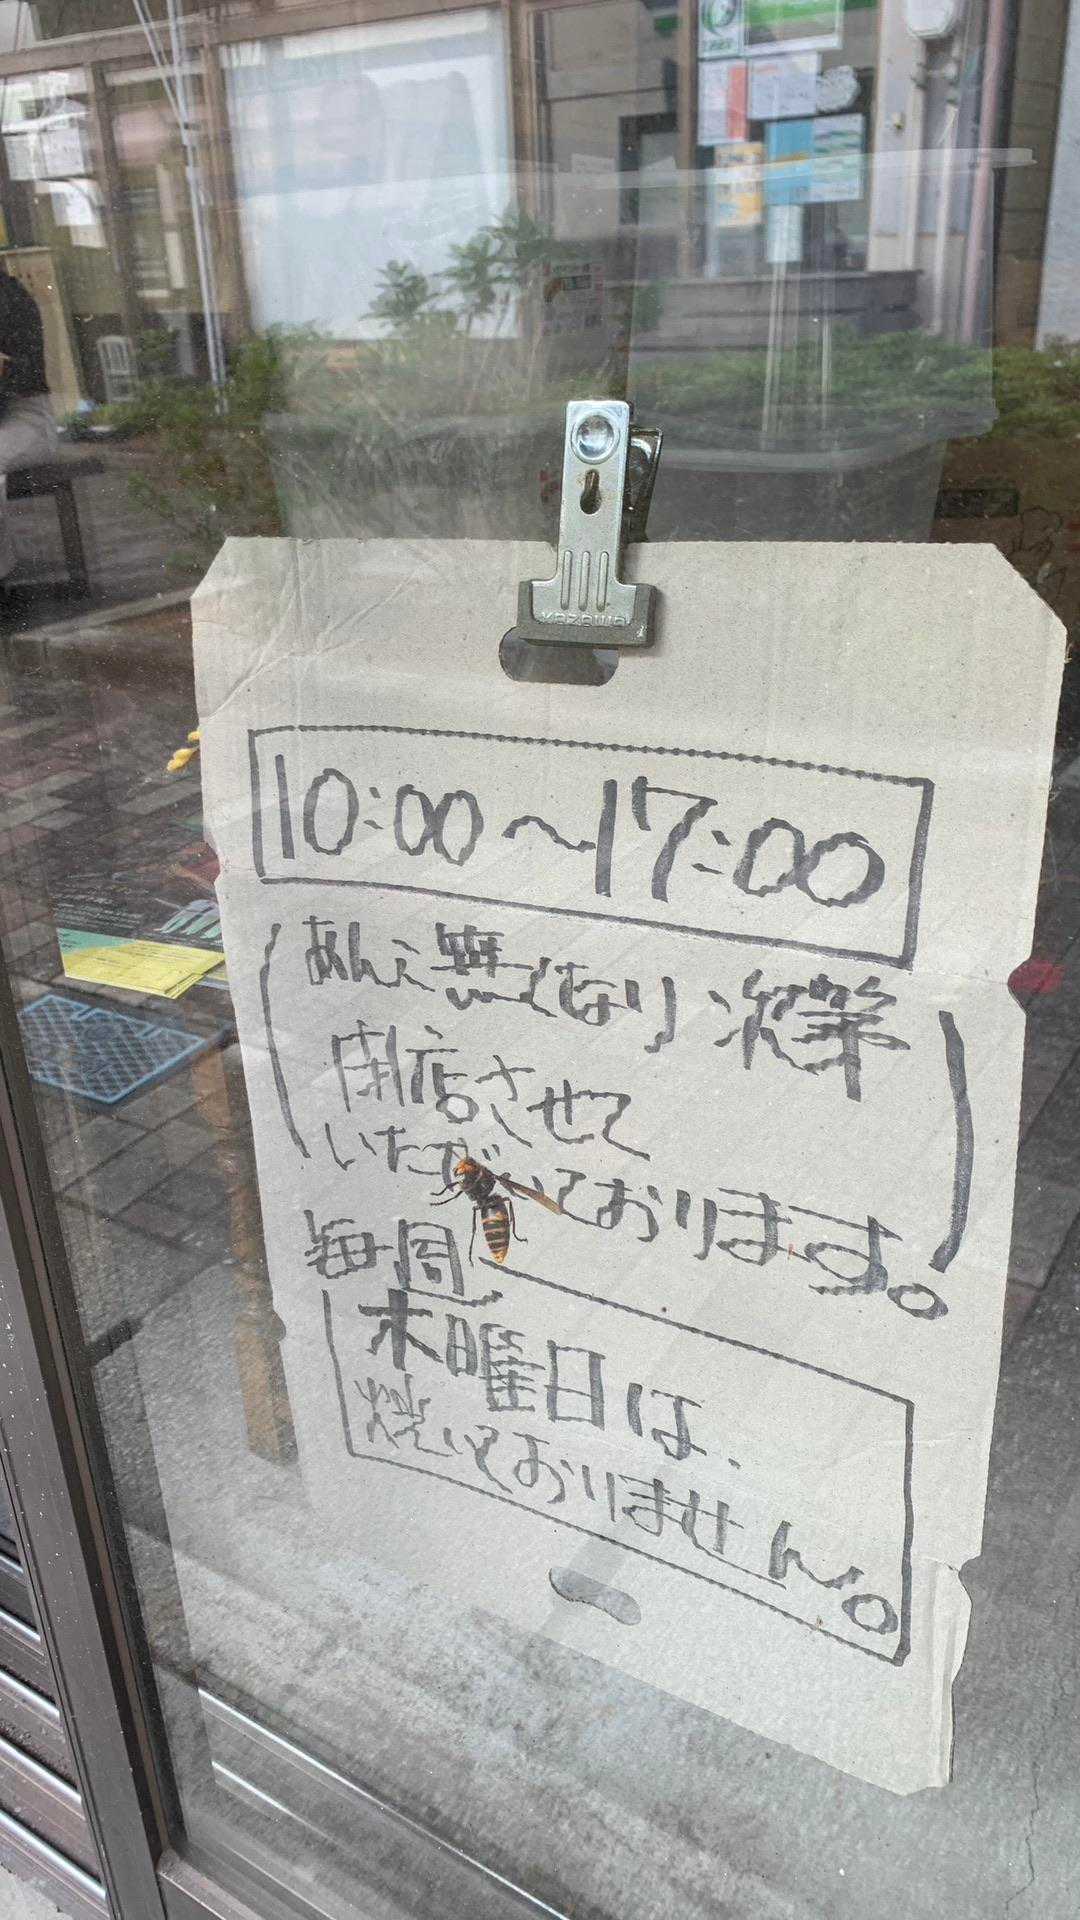 KAZAWA
10:00〜17:00
(あんこ無くなり次第
閉店させて
いただいております。)
毎週
木曜日は、
焼いておりません。